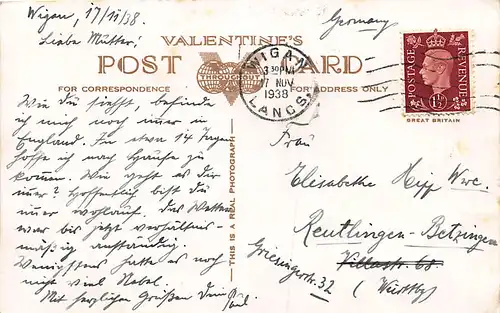 Wigan, 17/11/38.
Liebe Mutter!
Germany
VALENTINE'S
POST CARD
FOR CORRESPONDENCE
FOR ADDRESS ONLY
WIGAN
3 30 PM
17 NOV
1938
LANCS.
POSTAGE
REVENUE
1½D
GREAT BRITAIN
Wie du siehst, befinde
ich mich noch immer in
England. In etwa 14 Tagen
hoffe ich nach Hause zu
kommen. Wie geht es dir
immer? Hoffentlich bist du
immer wohlauf. Das Wetter
war bis jetzt verhältnis-
mäßig anständig.
Wenigstens hatte es noch
nicht viel Nebel.
Mit herzlichen Grüßen Dein Paul.
THIS IS A REAL PHOTOGRAPH
Frau
Elisabethe
Reutlingen-Betzingen
Villastr. 68.
Griesingerstr. 32
(Württbg)